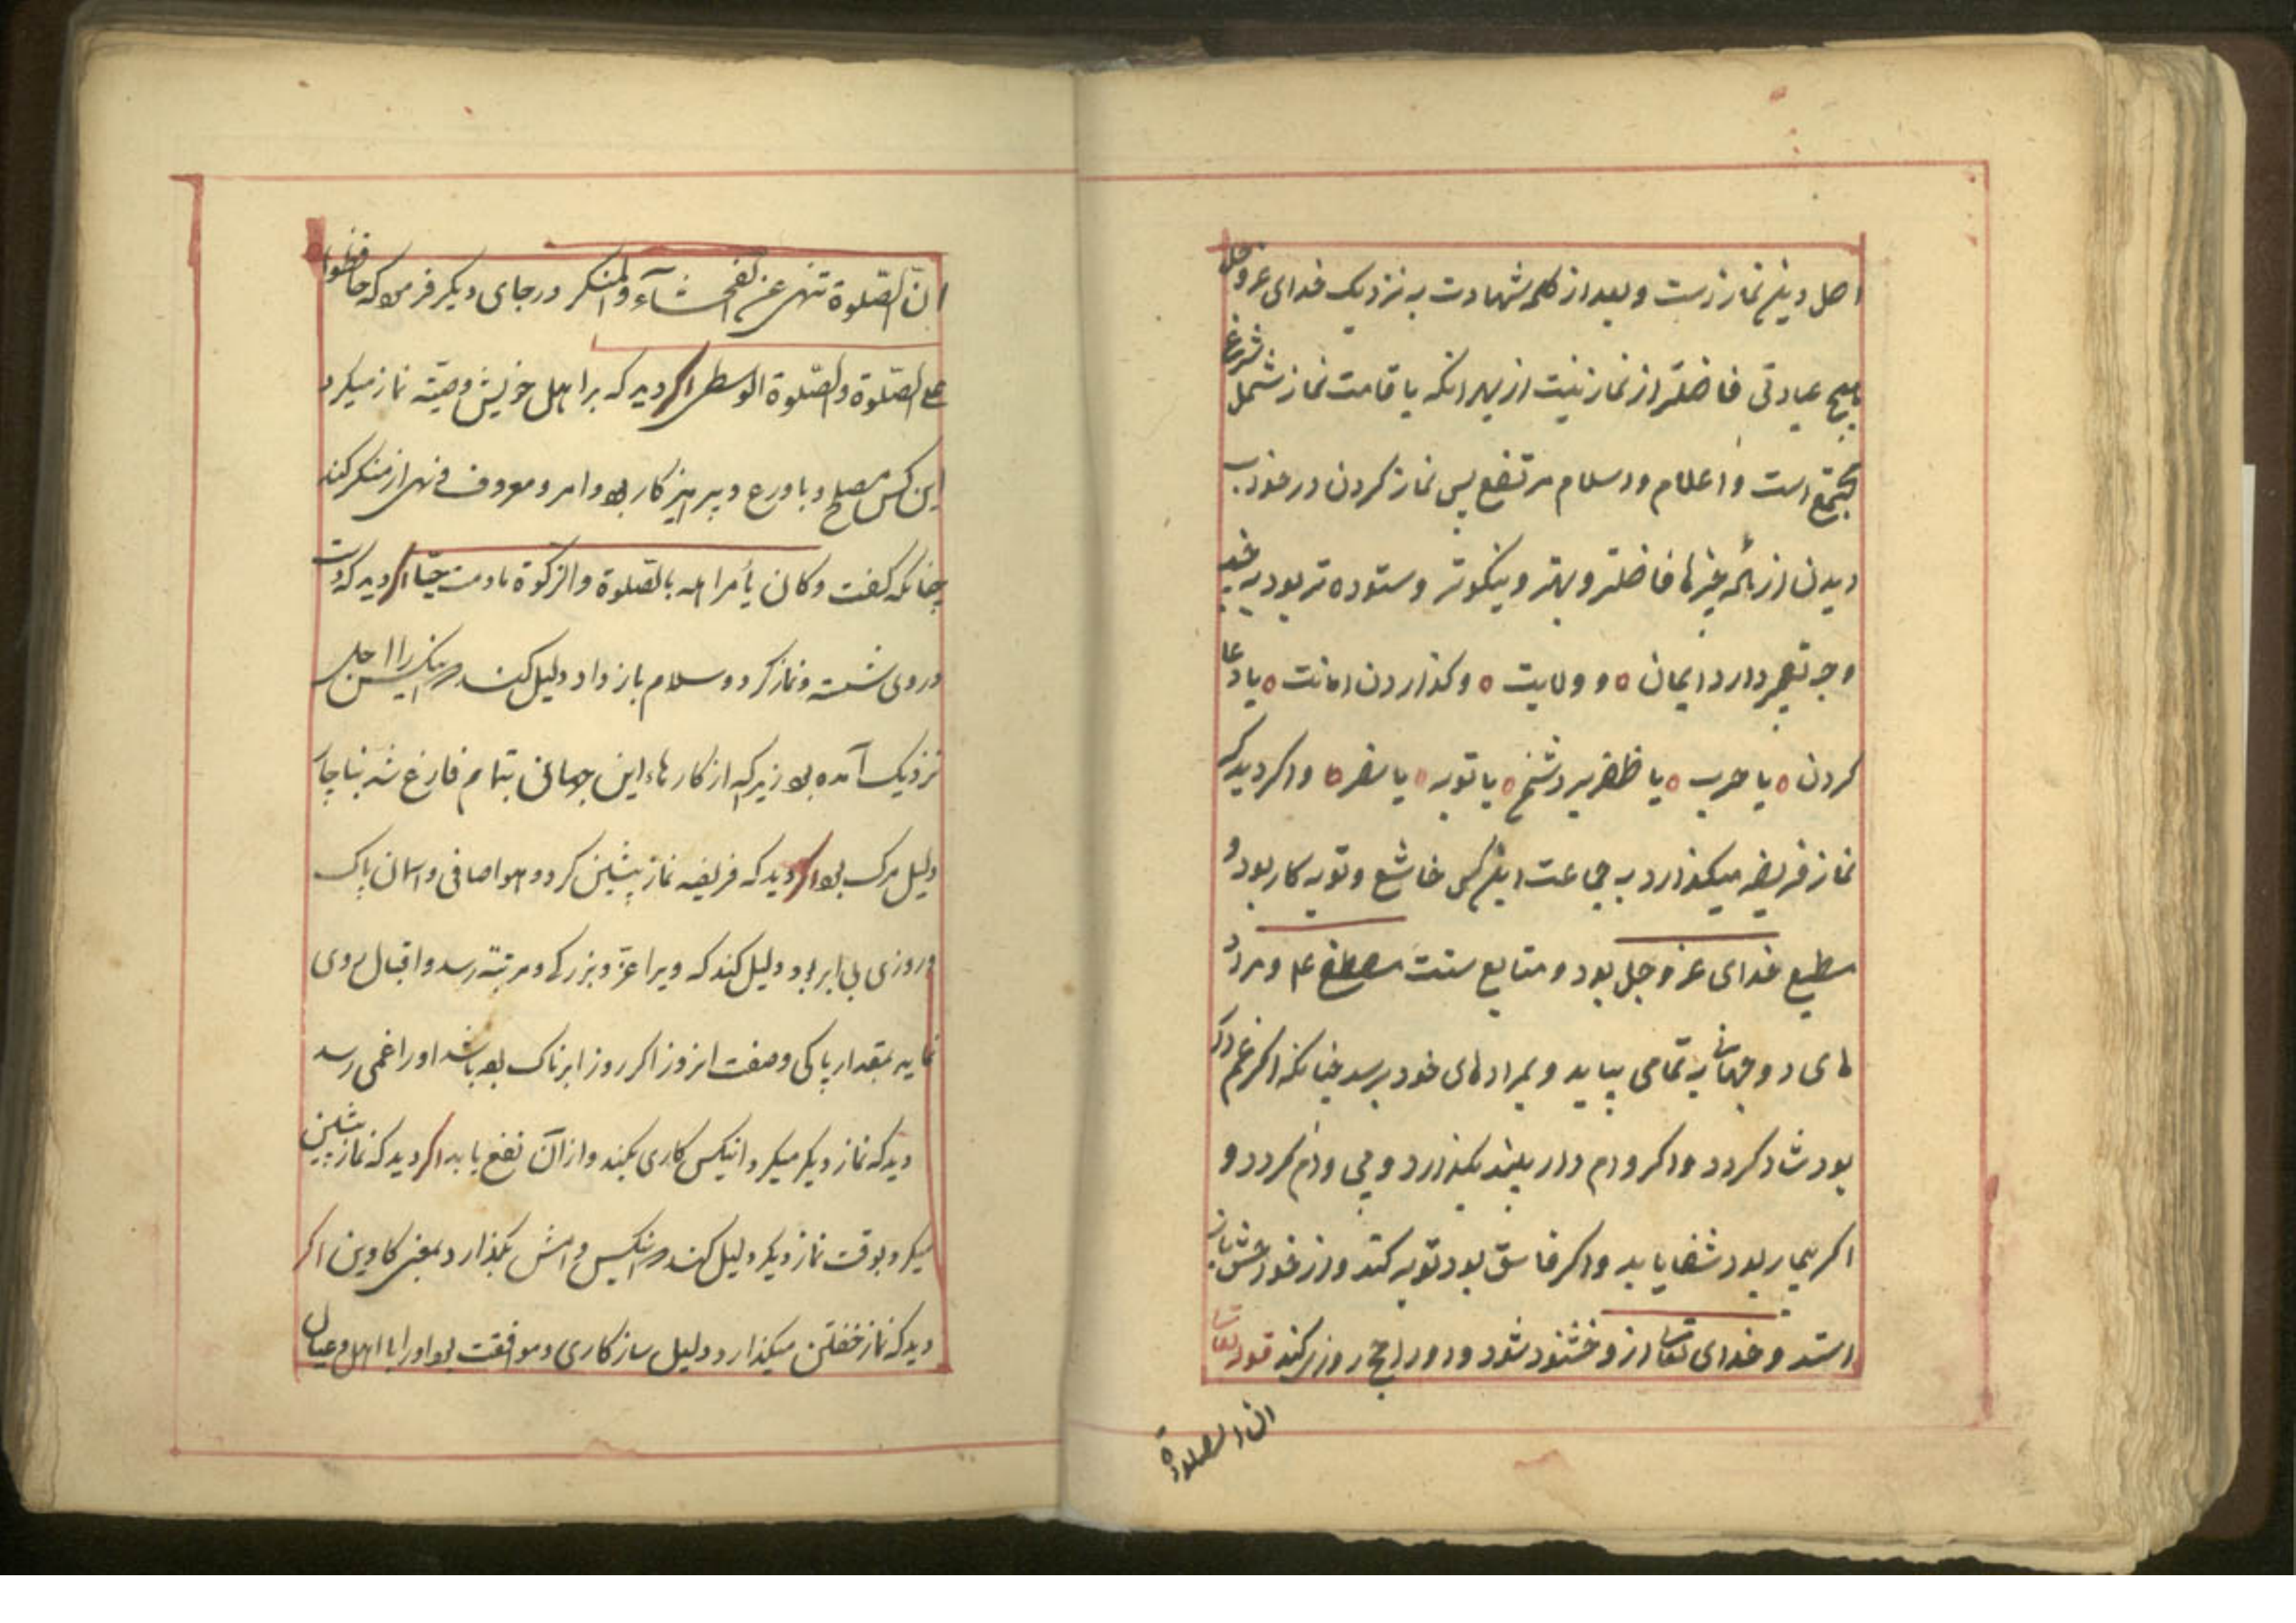 اصل دین نماز است و بعد از کلمه شهادت به نزدیک خدای عز و جل
هیچ عبادتی فاضلتر از نماز نیست از بهر انکه باقامت نماز شمل شرایع
مجتمع است و اعلام اسلام مرتفع پس نماز کردن در خواب
دیدن از همه خیرها فاضلتر و بهتر و نیکوتر و ستوده تر بود
وجه تعبیر دارد ایمان ٥ و ولایت ٥ و کذاردن امانت ٥ یا دعا
کردن ٥ یا حرب ٥ یا ظفر بر دشمن ٥ یا توبه ٥ یا سفر ٥ و اکر دید که
نماز فریضه میکذارد به جماعت این کس خاشع و توبه کار بود و
مطیع خدای عز و جل بود و متابع سنت مصطفی ع م و مراد
های دو جهانی به تمامی بیابد و بمرادهای خود برسد چنانکه اکر غم دار
بود شاد کردد و اکر وام دار بود بکذارد و بی وام کردد و
اکر بیمار بود شفا یابد و اکر فاسق بود توبه کند و از خود خشم باز
استد و خدای تعالی ازو خشنود شود و او را حج روزی کند قوله تعالی
ان الصلوة
ان الصلوة تنهی عن الفحشآء والمنکر در جای دیکر فرمود که حافظوا
علی الصلوة والصلوة الوسطی اکر دید که بر اهل خویش وصیّت نماز میکرد
این کس مصلح و با ورع و پرهیزکار بود و امر و معروف و نهی از منکر کند
چنانکه کفت وکان یأمر اهله بالصلوة والزکوة مادمت حیّا اکر دید که دست
و روی شسته و نماز کرد و سلام باز داد دلیل کند که اینکس را اجل
نزدیک آمده بود زیرا که از کارهاء این جهانی بتمام فارغ شد بناچار
دلیل مرک بود اکر دید که فریضه نماز پیشین کرد و هوا صافی و اسمان پاک
و روزی بی ابر بود دلیل کند که ویرا عزّ و بزرکی و مرتبة رسد و اقبال روی
نماید بمقدار پاکی و صفت انروز اکر روز ابرناک بود باشد او را غمی رسد
دید که نماز دیکر میکرد انیکس کاری بکند و از آن نفع یابد اکر دید که نماز پیشین
میکرد بوقت نماز دیکر دلیل کند که اینکس وامش بکذارد
دید که نماز خفتن میکذارد دلیل سازکاری و موافقت بود او را با اهل و عیال